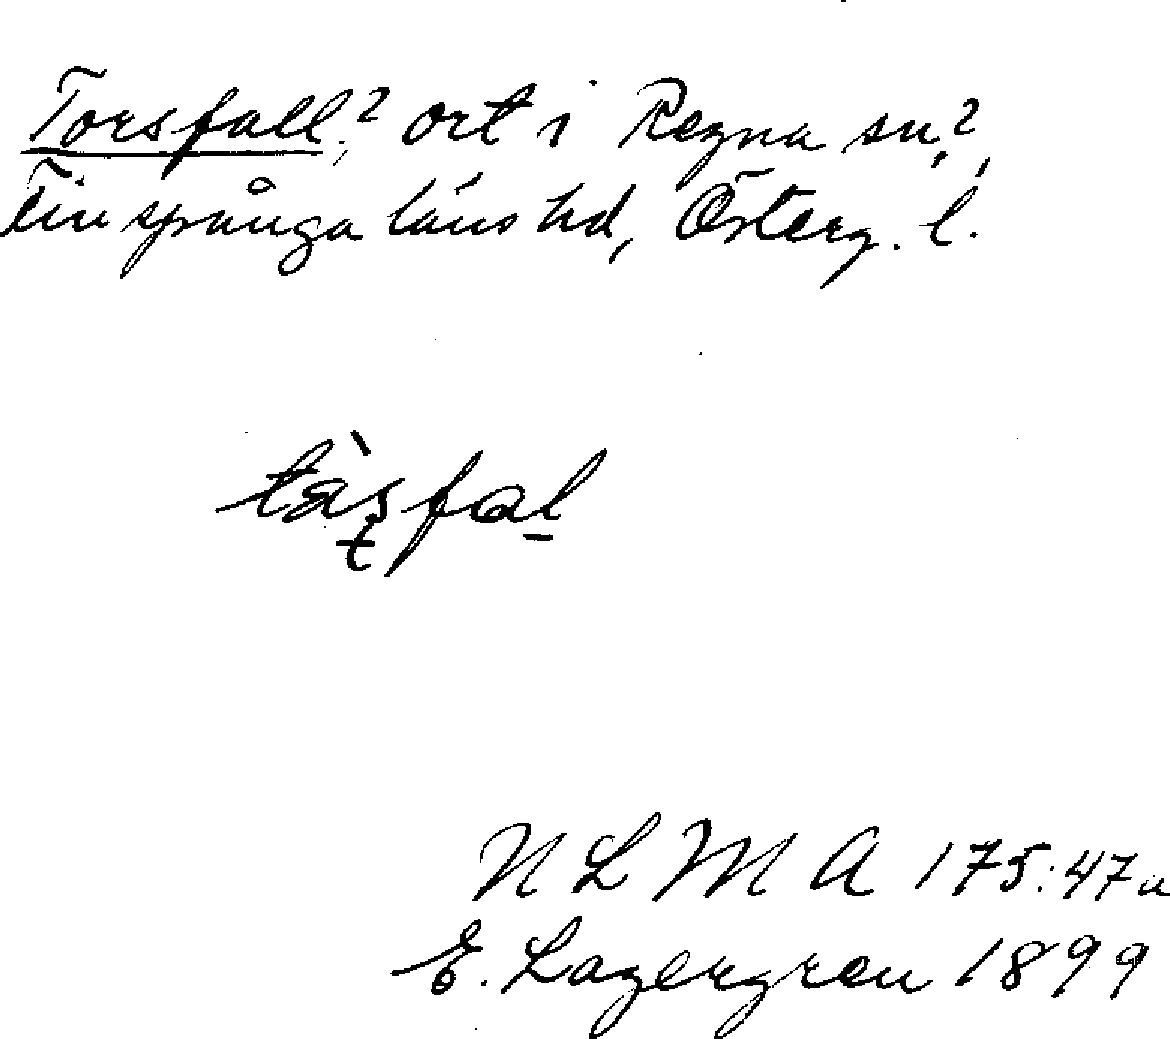 Torsfall?, ort i Regna sn?,
Finspånga läns hd, Österg. l.
tàsfal
N L M A 175:47a
E. Lagergren 1899